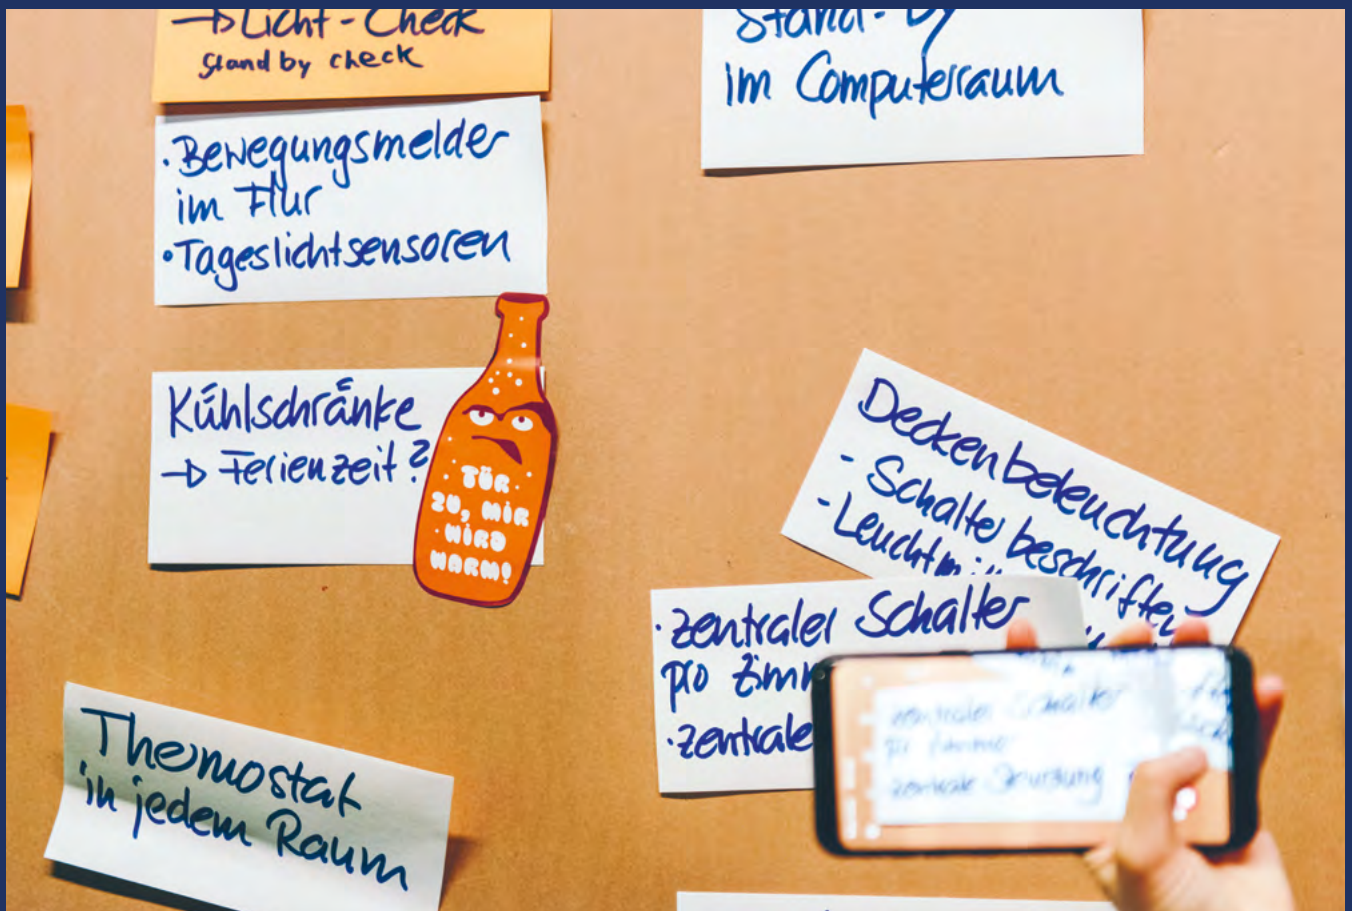 → Licht-Check
Stand by check
Stand-By
im Computerraum
• Bewegungsmelder
im Flur
• Tageslichtsensoren
Kühlschränke
→ Ferienzeit?
TÜR
ZU, MIR
WIRD
WARM!
Deckenbeleuchtung
- Schalter beschriften
• zentraler Schalter
pro
• zentrale
zentraler Schalter
pro Zimmer
zentrale Steuerung
Thermostat
in jedem Raum